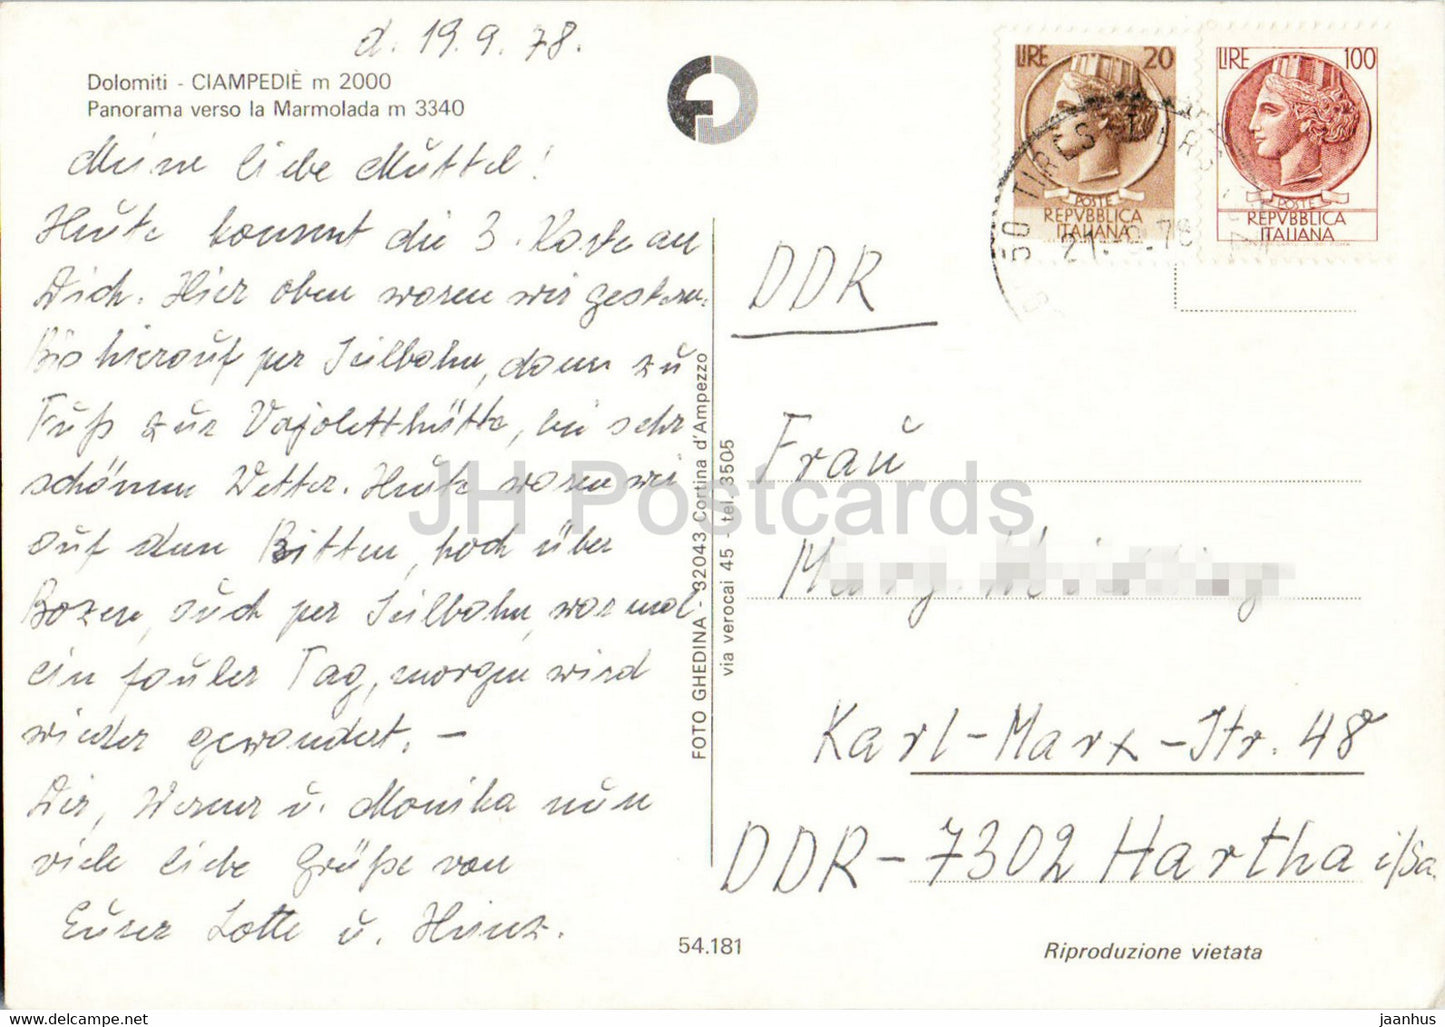 d. 19.9.78.
Dolomiti - CIAMPEDIÈ m 2000
Panorama verso la Marmolada m 3340
Meine liebe Muttel!
Heute kommt die 3. Karte an
Dich. Hier oben waren wir gestern.
Bis hierauf per Seilbahn, dann zu
Fuß zur Vajoletthütte, bei sehr
schönem Wetter. Heute waren wir
auf dem Ritten, hoch über
Bozen, auch per Seilbahn, war mal
ein fauler Tag, morgen wird
wieder gewandert. –
Dir, Werner u. Monika nun
viele liebe Grüße von
Eurer Lotte u. Heinz.
FOTO GHEDINA - 32043 Cortina d'Ampezzo
via verocai 45 - tel. 3505
54.181
LIRE 20
POSTE
REPVBBLICA
ITALIANA
LIRE 100
POSTE
REPVBBLICA
ITALIANA
50 TIRES
DDR
Frau
Karl-Marx-Str. 48
DDR-7302 Hartha i/Sa.
Riproduzione vietata
JH Postcards
www.jhpostcards.com
jaanhus